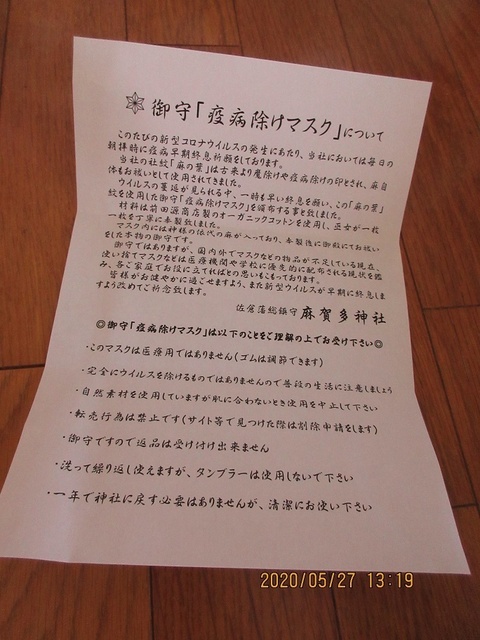 御守「疫病除けマスク」について
このたびの新型コロナウイルスの発生にあたり、当社においては毎日の
朝拝時に疫病早期終息祈願をしております。
当社の社紋「麻の葉」は古来より魔除けや疫病除けの印とされ、麻自
体もお祓いとして使用されてきました。
ウイルスの蔓延が見られる中、一時も早い終息を願い、この「麻の葉」
紋を使用した御守「疫病除けマスク」を頒布する事と致しました。
材料は前田源商店製のオーガニックコットンを使用し、巫女が一枚
一枚を丁寧に奉製致しました。
マスク内には神様の依代の麻が入っており、奉製後に御殿にてお祓い
をした本物の御守です。
御守ではありますが、国内外でマスクなどの物品が不足している現在、
使い捨てマスクなどは医療機関や学校に優先的に配布される現状を鑑
み、各ご家庭でお役に立てればとの思いもこもっております。
皆様がお健やかに過ごせますよう、また新型ウイルスが早期に終息しま
すよう改めてご祈念致します。
佐倉藩総鎮守 麻賀多神社
◎御守「疫病除けマスク」は以下のことをご理解の上でお受け下さい◎
・このマスクは医療用ではありません(ゴムは調節できます)
・完全にウイルスを除けるものではありませんので普段の生活に注意しましょう
・自然素材を使用していますが肌に合わないとき使用を中止して下さい
・転売行為は禁止です(サイト等で見つけた際は削除申請をします)
・御守ですので返品は受け付け出来ません
・洗って繰り返し使えますが、タンブラーは使用しないで下さい
・一年で神社に戻す必要はありませんが、清潔にお使い下さい
2020/05/27 13:19